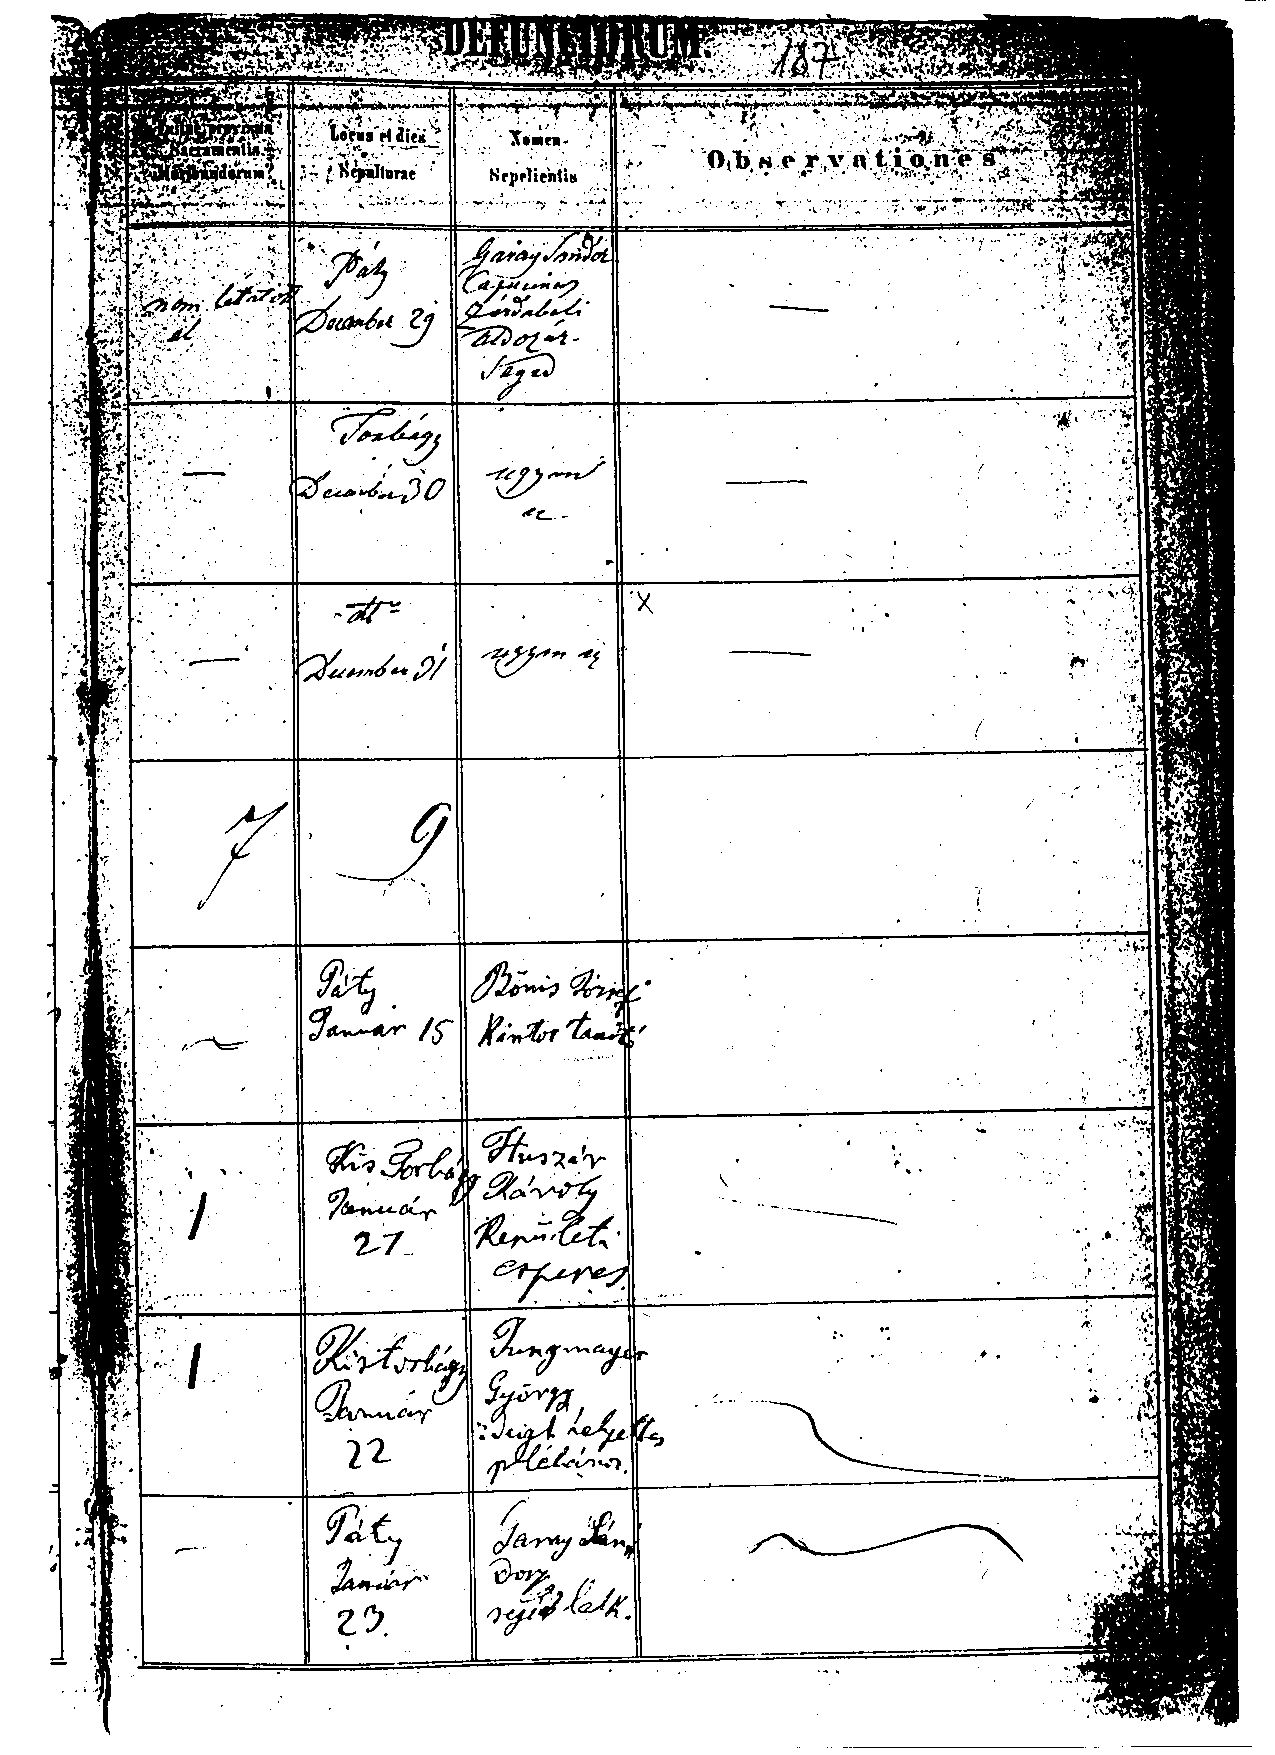 DEFUNCTORUM.
187
provisus
Sacramentis
Moribundorum?
Locus et dies
Sepulturae
Nomen
Sepelientis
Observationes
nem látatott
el
Páty
December 29
Garay Sándor
Capucinus
Zárdabeli
áldozár-
Segéd
Torbágy
December 30
ugyan
az
ott
December 31
ugyan az
X
7
9
Páty
Január 15
Bőnis József
Kántor tanító
1
Kis Torbágy
Január
21
Huszár
Károly
Kerületi
esperes
1
Kistorbágy
Január
22
Jungmayer
György
helyettes
plébános.
Páty
Január
23.
Garay Sán-
dor
segéd lelk.